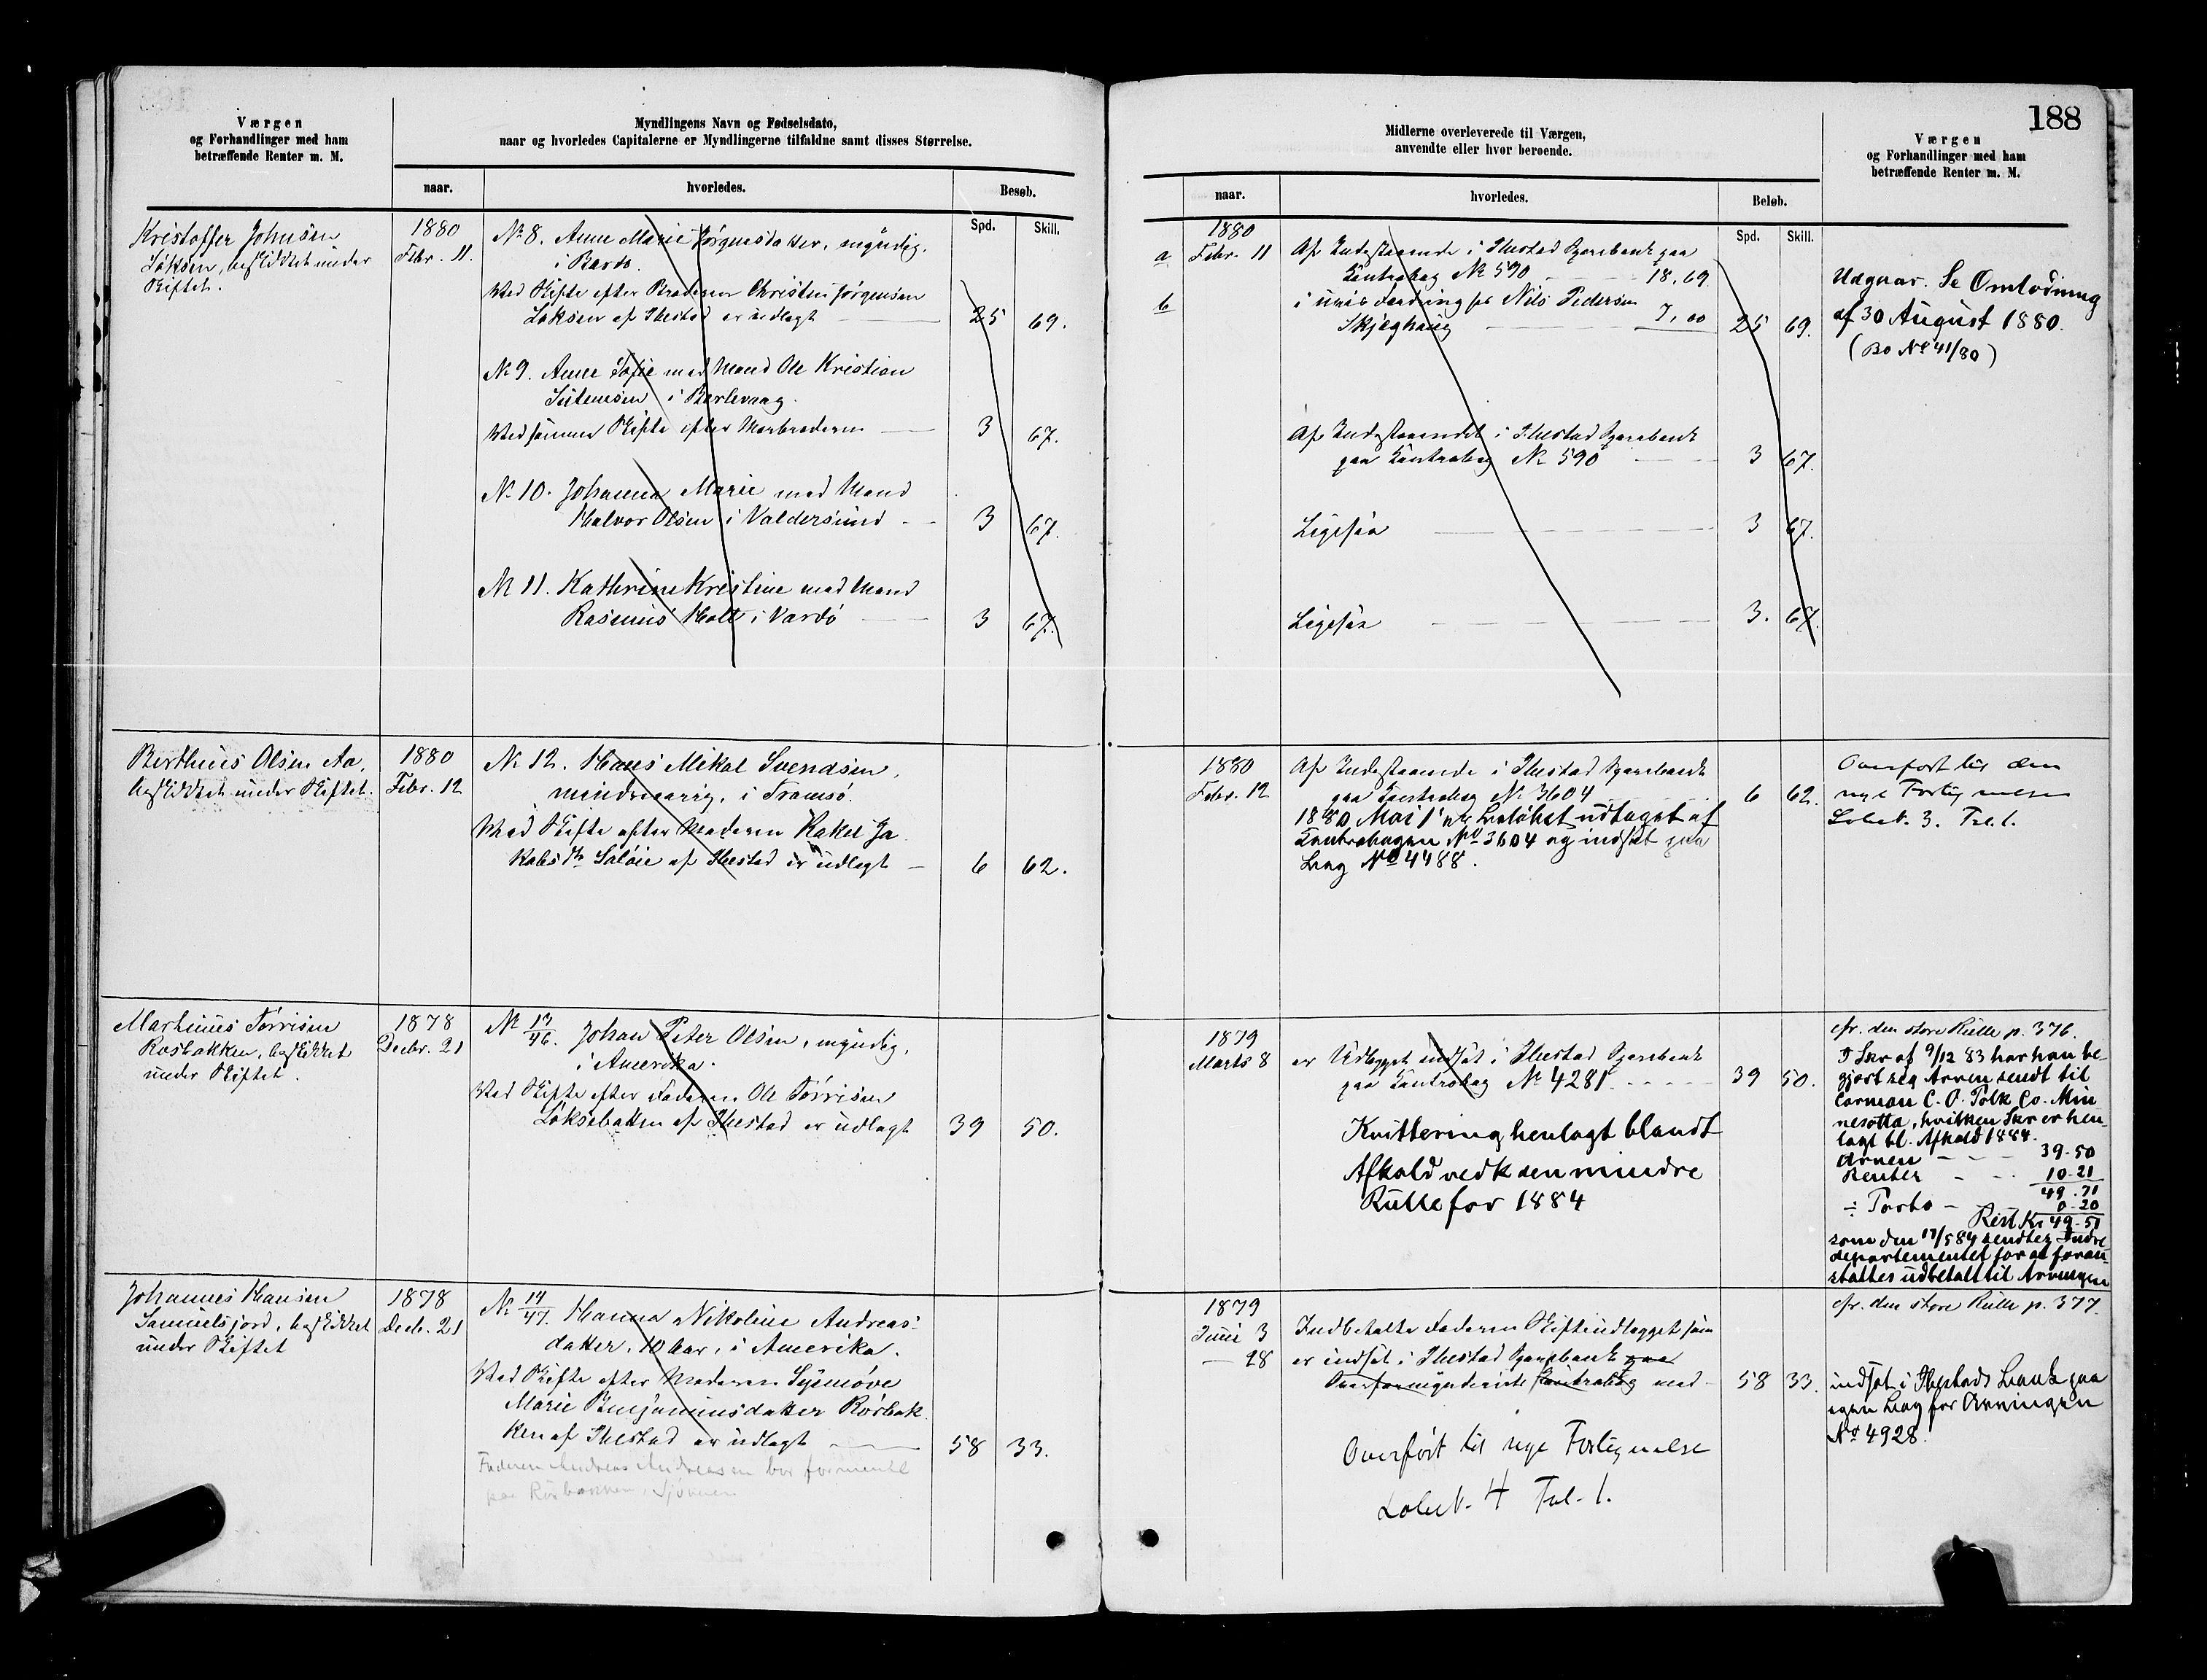 188
Værgen
og Forhandlinger med ham
betræffende Renter m. M.
Myndlingens Navn og Fødselsdato,
naar og hvorledes Capitalerne er Myndlingerne tilfaldne samt disses Størrelse.
naar.
hvorledes.
Besøb.
Spd.
Skill.
Kristoffer Johnsen
Löksen, beskikket under
Skiftet.
1880
Febr. 11.
No 8. Anne Marie Jörgensdatter, myndig,
i Bardo.
Ved Skifte efter Broderen Christen Jörgensen
Löksen af Ibestad er udlagt
25 69.
No 9. Anne Sofie med Mand Ole Kristian
i Berlevaag.
Ved samme Skifte efter Morbroderen
3 67.
No 10. Johanna Marie med Mand
Halvor Olsen i Valdersund
3 67.
No 11. Kathrine Kristine med Mand
Rasmus Holt i Vardö
3 67.
Bertheus Olsen Aa,
beskikket under Skiftet.
1880
Febr. 12
No 12. Hans Mikal Svendsen,
mindreaarig, i Tromsö.
Ved Skifte efter Moderen Rakel Ja-
kobsdr Salöie af Ibestad er udlagt
6 62.
Marthinus Törrisen
Rosbakken, beskikket
under Skiftet.
1878
Decbr. 21
No 13/46. Johan Peter Olsen, myndig,
i Amerika.
Ved Skifte efter Faderen Ole Törrisen
Löksebakken af Ibestad er udlagt
39 50.
Johannes Hansen
Samuelsjord, beskikket
under Skiftet
1878
Decb. 21
No 14/47. Hanna Nikoline Andreas-
datter, 10 Aar, i Amerika.
Ved Skifte efter Moderen Synnöve
Marie Benjaminsdatter Rösbak-
ken af Ibestad er udlagt
58 33.
Faderen Andreas Andreasen bor formentl
paa Rösbakken,
Midlerne overleverede til Værgen,
anvendte eller hvor beroende.
Værgen
og Forhandlinger med ham
betræffende Renter m. M.
naar.
hvorledes.
Beløb.
Spd.
Skill.
1880
a Febr. 11
Af Indestaaende i Ibestad Sparebank paa
Kontrabog No 590 18,69
b
i uvis Fordring hos Nils Pedersen
Skjæghaug 7,00
25 69.
Udgaar. Se Omlodning
af 30 August 1880.
(Bo No 41/80)
Af Indestaaendet i Ibestad Sparebank
paa Kontrabog No 590
3 67.
Ligesaa
3 67.
Ligesaa
3. 67.
1880
Febr. 12
Af Indestaaende i Ibestad Sparebank
paa Kontrabog No 3604
6 62.
1880 Mai 1 er Beløbet udtaget af
Kontrabogen No 3604 og indsat paa
Bog No 4488.
Overført til den
nye Fortegnelse
Lobet. 3. Fol. 1.
1879
Marts 8
er Udlægget indsat i Ibestad Sparebank
paa Kontrabog No 4281
39 50.
Kvittering henlagt blandt
Afkald vedk den mindre
Rulle for 1884
cfr. den store Rulle p. 376.
I Skr af 9/12 83 har han be-
gjært seg Arven sendt til
Carman C. O. Polk Co. Min-
nesotta, hvilken Skr er hen-
lagt bl. Afkald 1884.
Arven 39-50
Renter 10-21
49.71
÷ Porto 0-20
Rest Kr 49-51
som den 17/5 84 sendtes Indre-
departementet for at foran-
staltes udbetalt til Arvingen
1879
Juni 3
— 28
Indbetalte Faderen Skifteudlægget som
er indsat i Ibestad Sparebank paa
Overformynderiets Kontrabog med
58 33.
Overført til nye Fortegnelse
Lobet. 4 Fol. 1.
cfr. den store Rulle p. 377.
indsat i Ibestads Bank paa
egen Bog for Arvingen
No 4928.